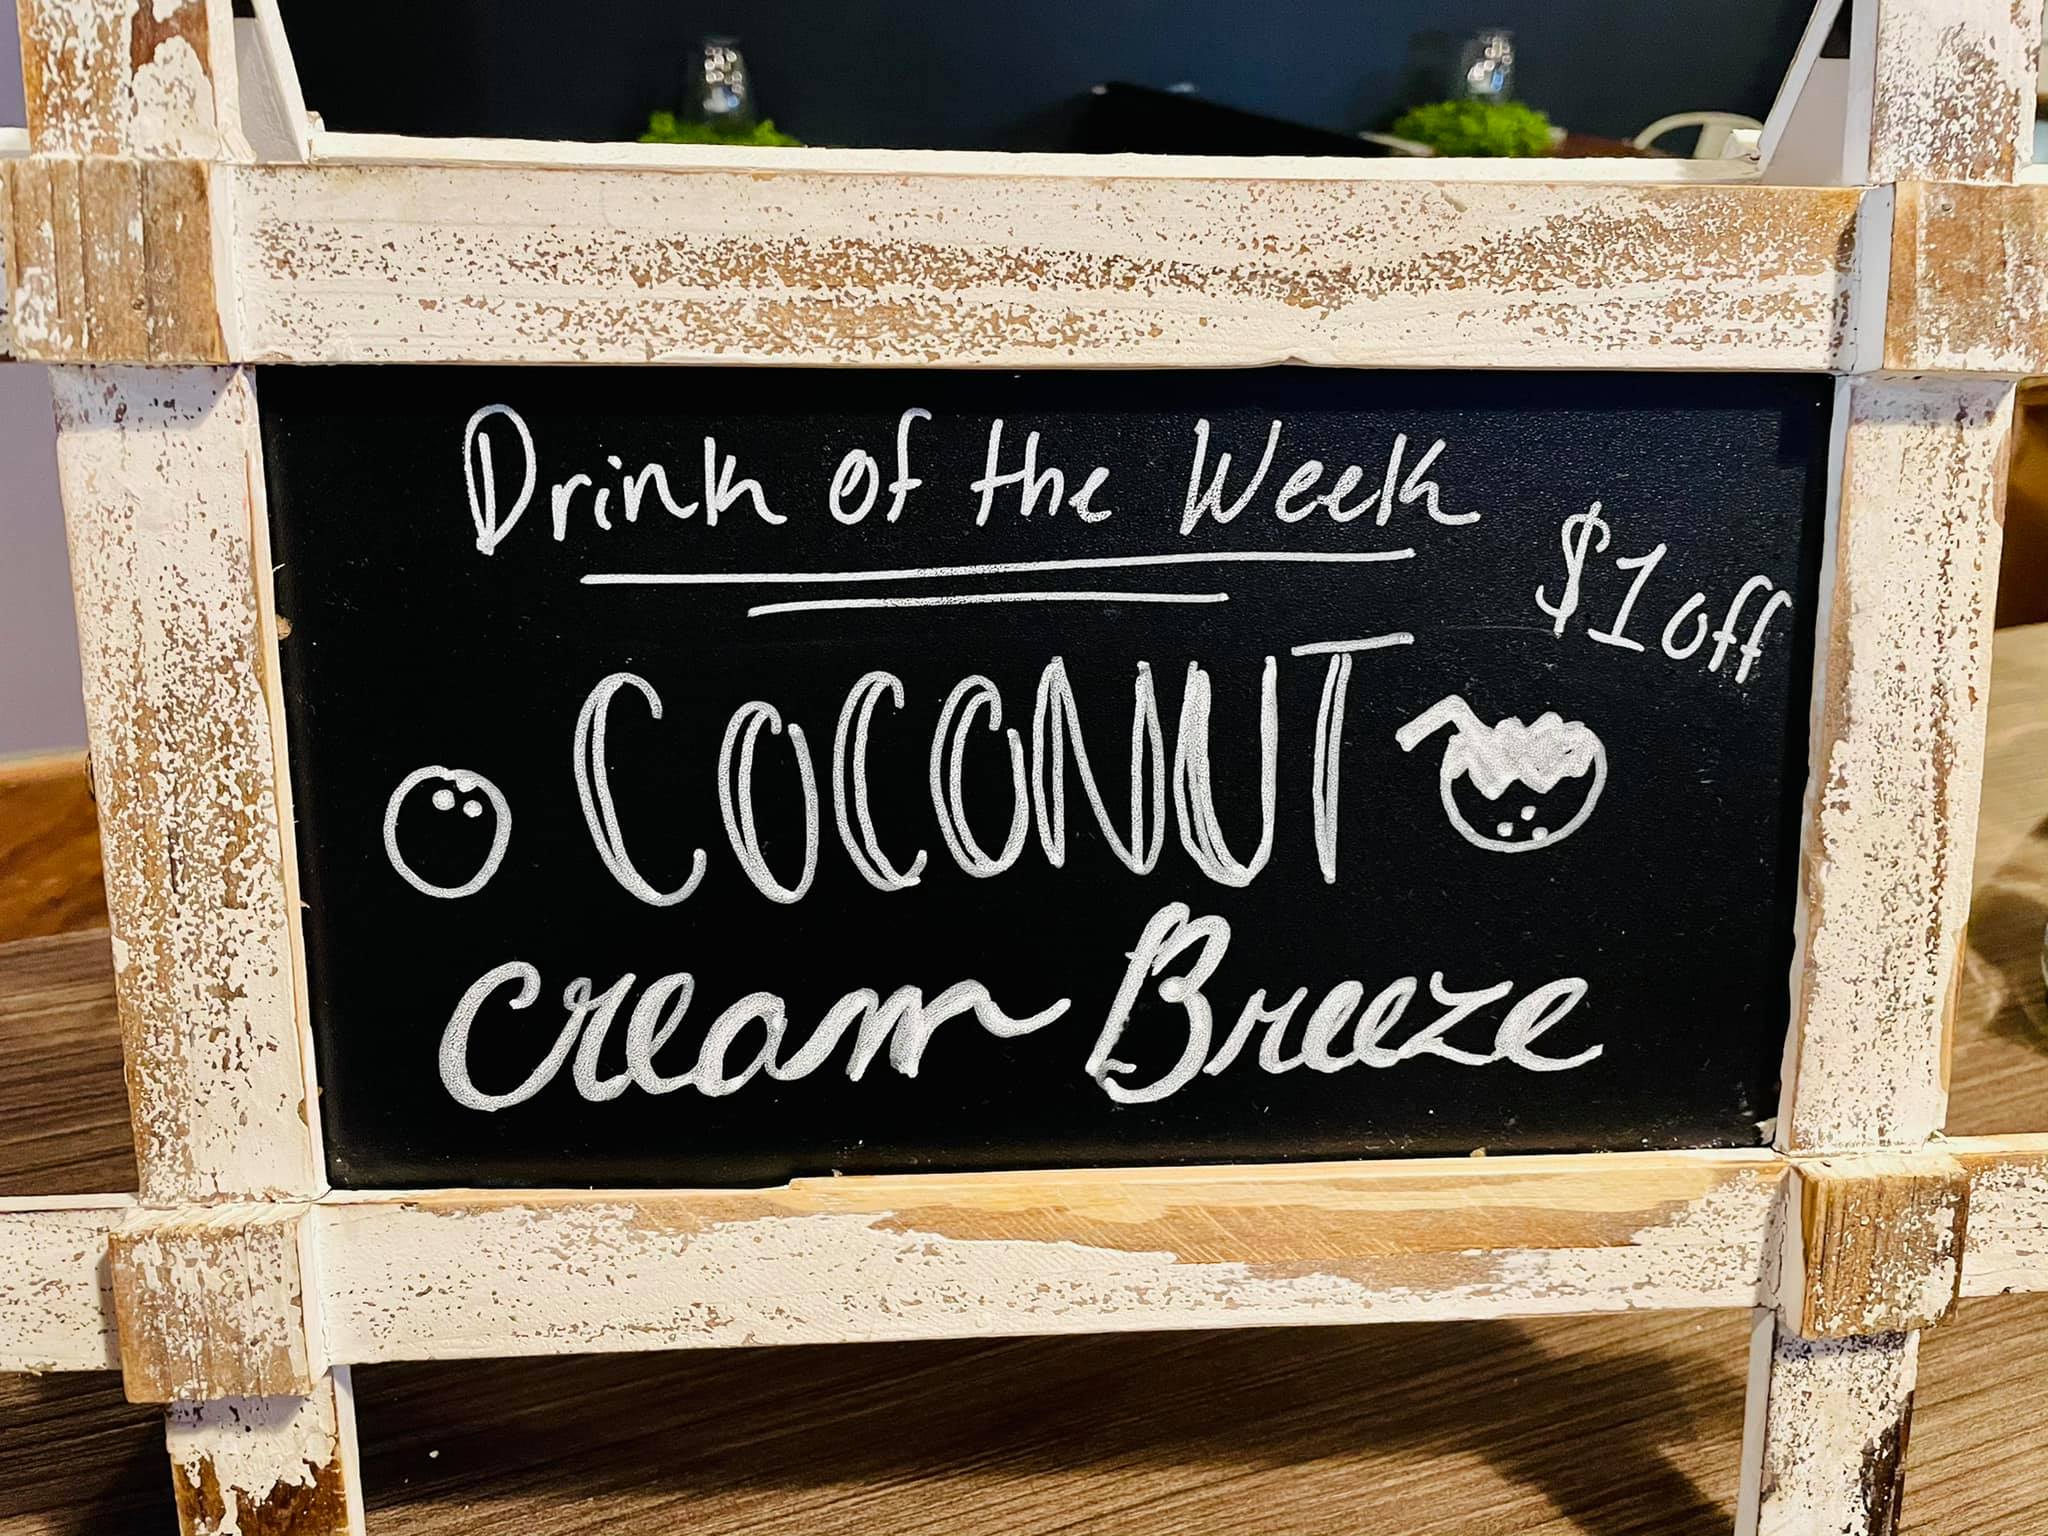 Drink of the Week
$1 off
COCONUT
Cream Breeze